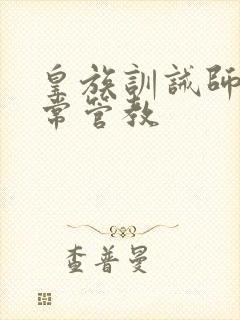 皇族訓誡師
常管教
查普曼